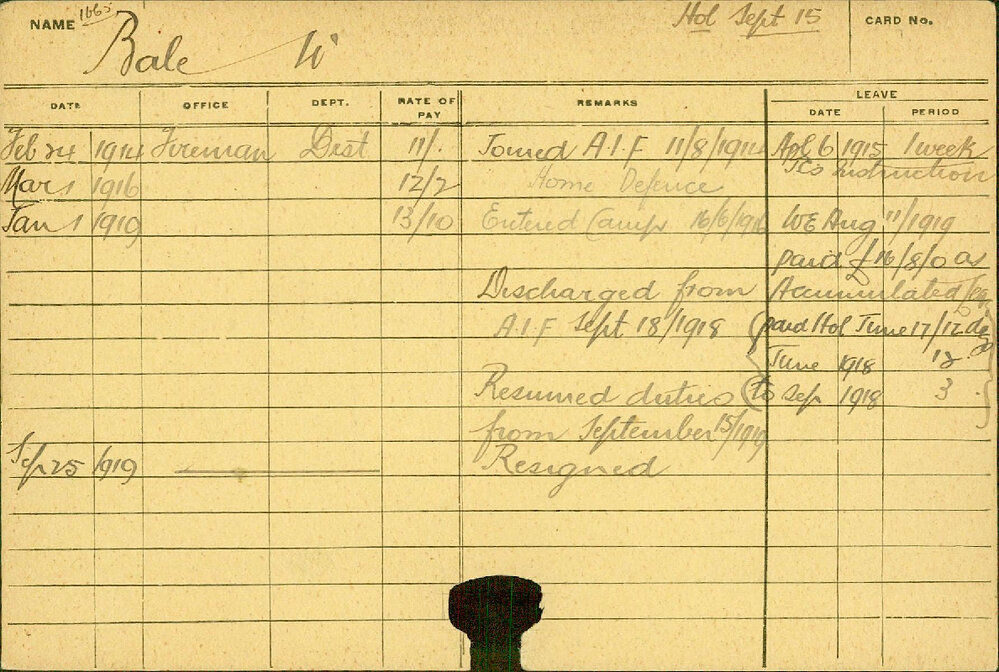 NAME 1665 Bale W Hol Sept 15 CARD No.
DATE OFFICE DEPT. RATE OF PAY REMARKS LEAVE
DATE PERIOD
Feb 24 1914 Fireman Dist 11/. Joined A.I.F 11/8/1914 Apl 6 1915 1 week
Mar 1 1916 12/2 Home Defence Instruction
Jan 1 1919 13/10 Entered Camp 16/6/191 WE Aug 11/1919
paid £16/8/0 as
Discharged from Accumulated
A.I.F Sept 18/1918 (paid Hol June 17/12 dys
June 1918 12
Resumed duties (to Sep 1918 3
from September 15/1919
Sep 25 1919 Resigned